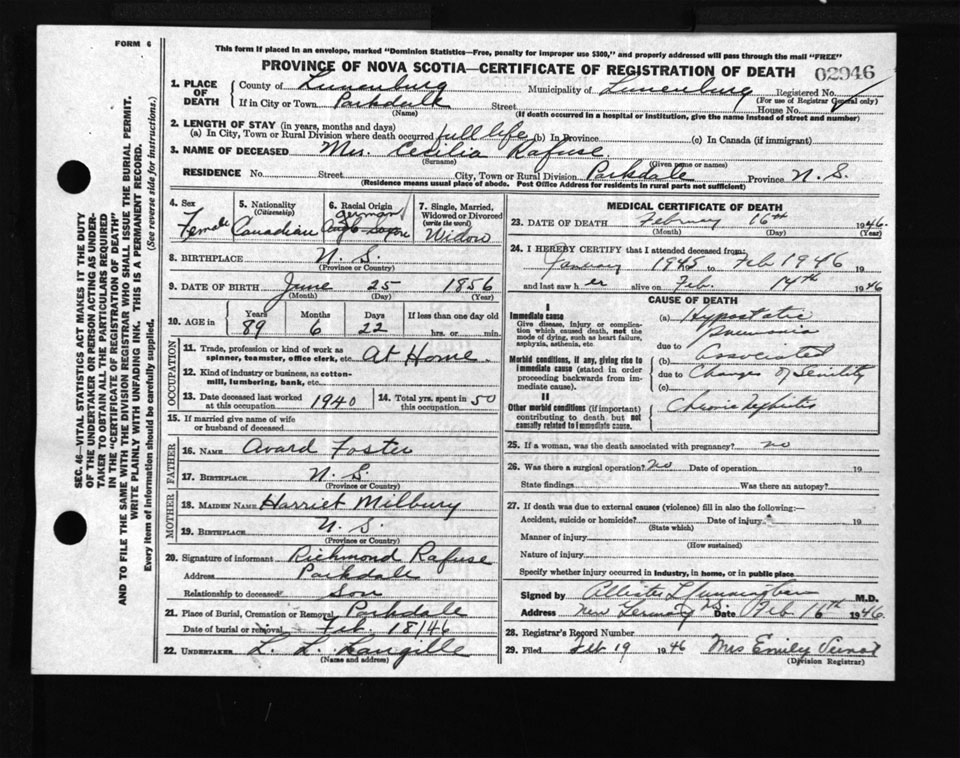 FORM 6
This form if placed in an envelope, marked "Dominion Statistics—Free, penalty for improper use $300," and properly addressed will pass through the mail "FREE"
PROVINCE OF NOVA SCOTIA—CERTIFICATE OF REGISTRATION OF DEATH
02946
1. PLACE OF DEATH
County of Lunenburg Municipality of Lunenburg Registered No.
(For use of Registrar General only)
If in City or Town Parkdale Street House No.
(Name) (If death occurred in a hospital or institution, give the name instead of street and number)
2. LENGTH OF STAY (in years, months and days)
(a) In City, Town or Rural Division where death occurred full life (b) In Province (c) In Canada (if immigrant)
3. NAME OF DECEASED Mrs. Cecilia Rafuse
(Surname) (Given name or names)
RESIDENCE No. Street City, Town or Rural Division Parkdale Province N. S.
(Residence means usual place of abode. Post Office Address for residents in rural parts not sufficient)
4. Sex Female
5. Nationality (Citizenship) Canadian
6. Racial Origin German Anglo-Saxon
7. Single, Married, Widowed or Divorced (write the word) Widow
8. BIRTHPLACE N. S.
(Province or Country)
9. DATE OF BIRTH June 25 1856
(Month) (Day) (Year)
10. AGE in Years Months Days If less than one day old
89 6 22 hrs. or min.
OCCUPATION
11. Trade, profession or kind of work as spinner, teamster, office clerk, etc. At Home
12. Kind of industry or business, as cotton-mill, lumbering, bank, etc.
13. Date deceased last worked at this occupation 1940
14. Total yrs. spent in this occupation 50
15. If married give name of wife or husband of deceased
FATHER
16. NAME Avard Foster
17. BIRTHPLACE N. S.
(Province or Country)
MOTHER
18. MAIDEN NAME Harriet Milbury
19. BIRTHPLACE N. S.
(Province or Country)
20. Signature of informant Richmond Rafuse
Address Parkdale
Relationship to deceased Son
21. Place of Burial, Cremation or Removal Parkdale
Date of burial or removal Feb. 18/46
22. UNDERTAKER L. L. Langille
(Name and address)
MEDICAL CERTIFICATE OF DEATH
23. DATE OF DEATH February 16th 1946
(Month) (Day) (Year)
24. I HEREBY CERTIFY that I attended deceased from
January 1945 to Feb 1946 19
and last saw her alive on Feb. 14th 1946
CAUSE OF DEATH
I
Immediate cause
Give disease, injury or complication which caused death, not the mode of dying, such as heart failure, asphyxia, asthenia, etc.
(a) Hypostatic Pneumonia
due to
Morbid conditions, if any, giving rise to immediate cause (stated in order proceeding backwards from immediate cause).
(b) Associated
due to Changes of Senility
(c)
II
Other morbid conditions (if important) contributing to death but not causally related to immediate cause.
Chronic Nephritis
25. If a woman, was the death associated with pregnancy? no
26. Was there a surgical operation? No Date of operation 19
State findings Was there an autopsy?
27. If death was due to external causes (violence) fill in also the following:—
Accident, suicide or homicide? Date of injury 19
(State which)
Manner of injury
(How sustained)
Nature of injury
Specify whether injury occurred in industry, in home, or in public place
Signed by Allister Cunningham M.D.
Address New Germany N.S. Date Feb 16th 1946
28. Registrar's Record Number
29. Filed Feb 19 1946 Mrs Emily
(Division Registrar)
SEC. 46—VITAL STATISTICS ACT MAKES IT THE DUTY
OF THE UNDERTAKER OR PERSON ACTING AS UNDER-
TAKER TO OBTAIN ALL THE PARTICULARS REQUIRED
IN THE "CERTIFICATE OF REGISTRATION OF DEATH"
AND TO FILE THE SAME WITH THE DIVISION REGISTRAR WHO SHALL ISSUE THE BURIAL PERMIT.
WRITE PLAINLY WITH UNFADING INK. THIS IS A PERMANENT RECORD.
Every item of information should be carefully supplied. (See reverse side for instructions.)